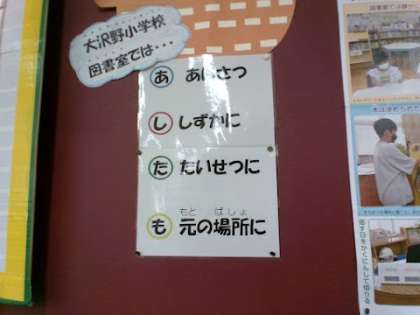 大沢野小学校
図書室では・・・
あ あいさつ
し しずかに
た たいせつに
も 元の場所に
もと ばしょ